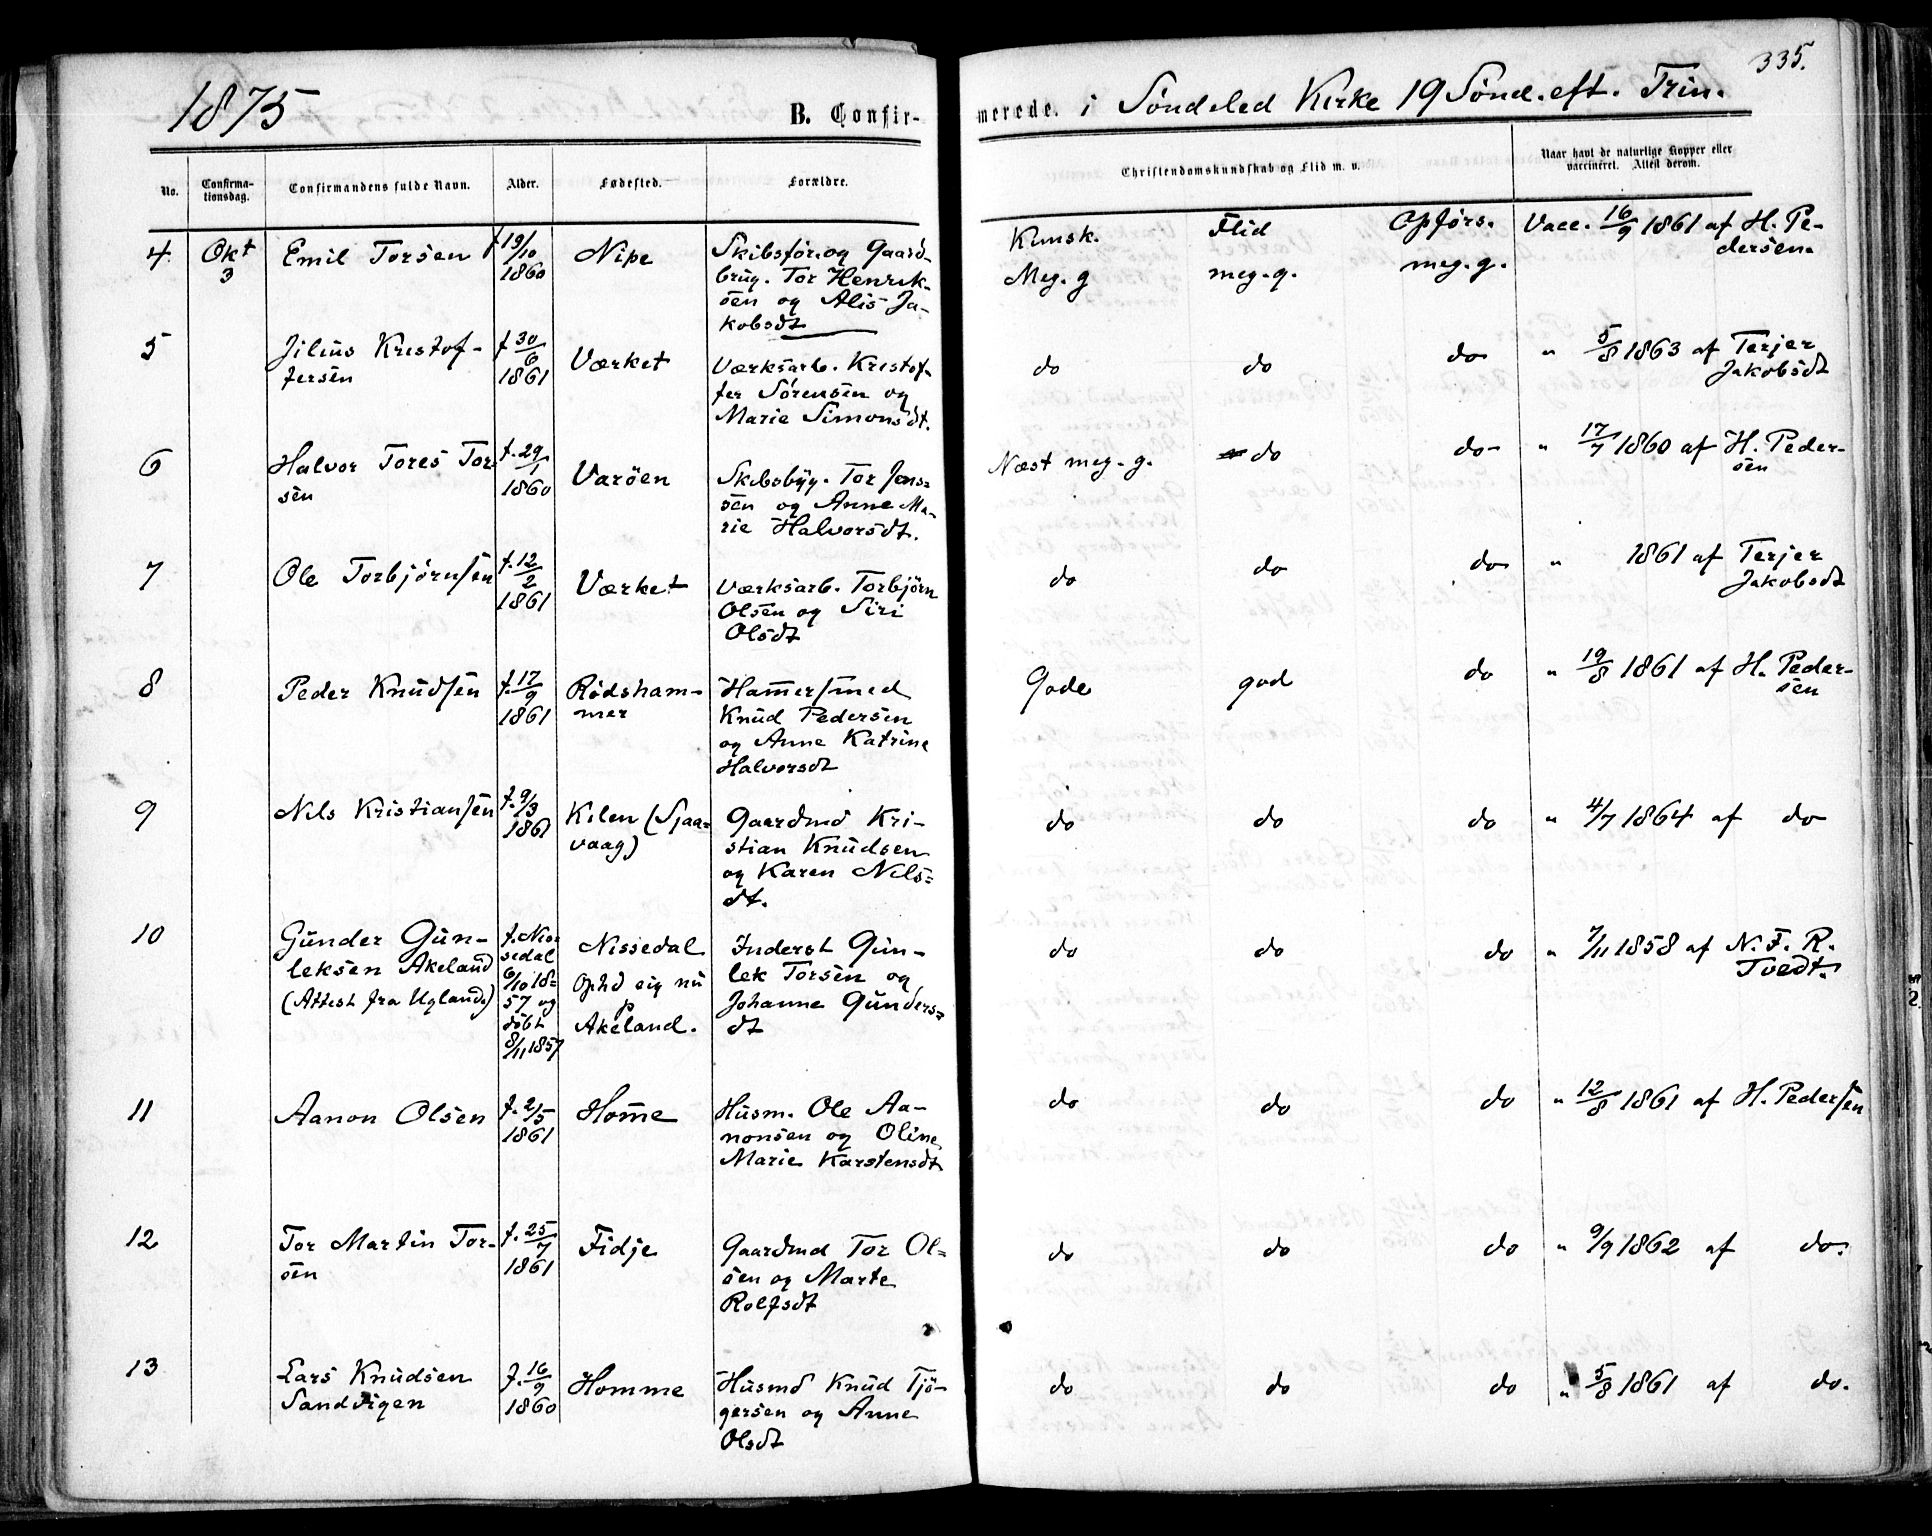 335.
1875 B. Confirmerede. i Söndeled Kirke 19 Sönd. eft. Trin.
No. Confirmationsdag. Confirmandens fulde Navn. Alder. Fødested. Forældre. Christendomskundskab og Flid m. v. Naar havt de naturlige Kopper eller vaccineret. Attest derom.
Kunsk. Flid Opförs.
4 Okt 3 Emil Torsen f 19/10 1860 Nipe
Skibsför. og Gaard-
brug. Tor Henrik-
sen og Alis Ja-
kobsdt
Meg. g meg. g. meg. g. Vacc. 16/9 1861 af H. Pe-
dersen.
5 Jilius Kristof-
fersen
f 30/6 1861 Værket
Værksarb. Kristof-
fer Sörensen og
Marie Simonsdt.
do do do " 5/8 1863 af Terjer
Jakobsdt
6 Halvor Tores Tor-
sen
f. 29/1 1860 Varöen
Skibsbyg. Tor Jens-
sen og Anne Ma-
rie Halvorsdt.
Næst meg. g. do do " 17/7 1860 af H. Peder-
sen
7 Ole Torbjörnsen f. 12/2 1861 Værket
Værksarb. Torbjörn
Olsen og Siri
Olsdt
do do do " 1861 af Terjer
Jakobsdt
8 Peder Knudsen f. 17/9 1861 Rödsham-
mer
Hamersmed
Knud Pedersen
og Anne Katrine
Halvorsdt
Gode god do " 19/8 1861 af H. Peder-
sen
9 Nils Kristiansen f. 9/3 1861 Kilen (Sjaa-
vaag)
Gaardmd Kri-
stian Knudsen
og Karen Nils-
dt.
do do do " 4/7 1864 af do
10 Gunder Gun-
leksen Akeland
(Attest fra Ugland.)
f. Nis-
sedal
6/10 18-
57 og
döbt
8/11 1857
Nissedal
Ophd sig nu
p
Akeland.
Inderst Gun-
lek Torsen og
Johanne Gunders-
dt
do do do " 7/11 1858 af N. F. R.
Tvedt.
11 Aanon Olsen f. 2/5 1861 Home
Husm. Ole Aa-
nonsen og Oline
Marie Karstensdt
do do do " 12/8 1861 af H. Pedersen
12 Tor Martin Tor-
sen
f. 25/7 1861 Fidje
Gaardmd Tor Ol-
sen og Marte
Rolfsdt
do do do " 9/9 1862 af do.
13 Lars Knudsen
Sandvigen
f. 16/9 1860 Homme
Husmd Knud Tjö-
gersen og Anne
Olsdt
do do do " 5/8 1861 af do.